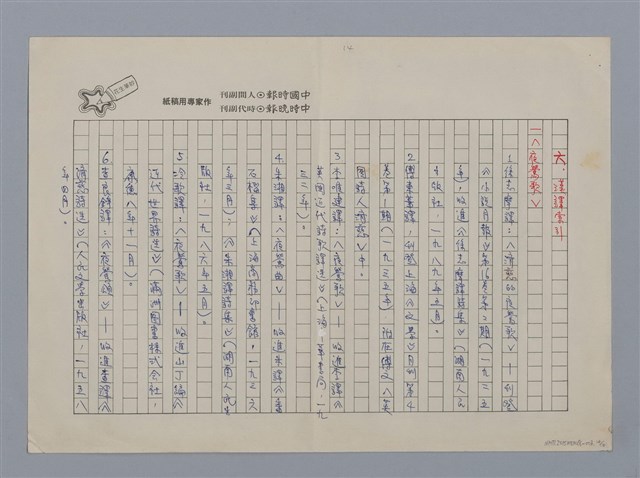 14
中國時報⊙人間副刊
中時晚報⊙時代副刊
作家專用稿紙
六、漢譯索引
一〈夜鶯歌〉
1.徐志摩譯：〈濟慈的夜鶯歌〉——刊登
《小說月報》第16卷第二期（一九二五
年），收進《徐志摩譯詩集》（湖南人民
出版社，一九八九年五月）。
2.傅東華譯，刊登上海《文學》月刊第4
卷第1期（一九三五年）附在傅文〈英
國詩人濟慈〉中。
3.李唯建譯：〈夜鶯歌〉——收進李譯《
英國近代詩歌譯選》（上海，中華書局，一九
三三年）。
4.朱湘譯：〈夜鶯曲〉——收進朱譯《番
石榴集》（上海商務印書館，一九三六
年三月）；《朱湘譯詩集》（湖南人民出
版社，一九八六年五月）。
5.冷歌譯：〈夜鶯歌〉——收進山丁編《
近代世界詩選》（滿洲圖書株式會社，
康德八年十一月）。
6.查良錚譯：〈夜鶯頌〉——收進查譯《
濟慈詩選》（人民文學出版社，一九五八
年四月）。